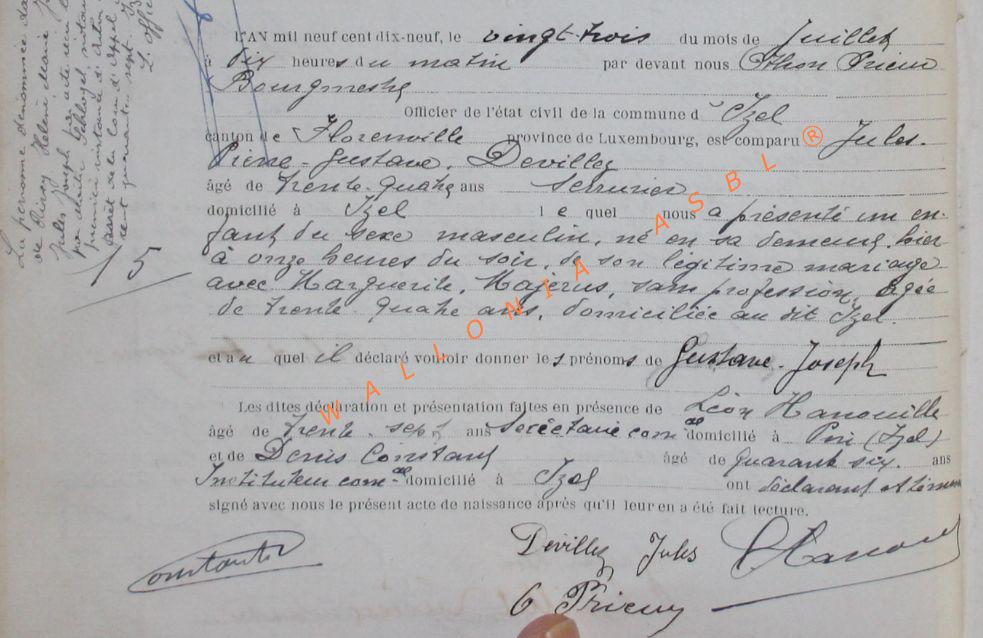 La personne dénommée
de Risey Hélène Marie
Jules Joseph par acte
L'AN mil neuf cent dix-neuf, le vingt-trois du mois de Juillet
à dix heures du matin par devant nous Othon Prieur
Bourgmestre
Officier de l'état civil de la commune d' Izel
canton de Florenville province de Luxembourg, est comparu Jules-
Pierre-Gustave, Devillez
âgé de trente-quatre ans serrurier
domicilié à Izel le quel nous a présenté un en-
fant du sexe masculin, né en sa demeure, hier
à onze heures du soir, de son légitime mariage
avec Marguerite, Majerus, sans profession, âgée
de trente-quatre ans, domiciliée au dit Izel.
et au quel il déclaré vouloir donner les prénoms de Gustave-Joseph
Les dites déclaration et présentation faites en présence de Léon Hanouille
âgé de trente-sept ans secrétaire comal domicilié à Pin (Izel)
et de Denis Constant âgé de quarante six ans
Instituteur comal domicilié à Izel ont déclarant et témoins
signé avec nous le présent acte de naissance après qu'il leur en a été fait lecture.
15
WALLONIA ASBL ®
Devillez Jules
O Prieur